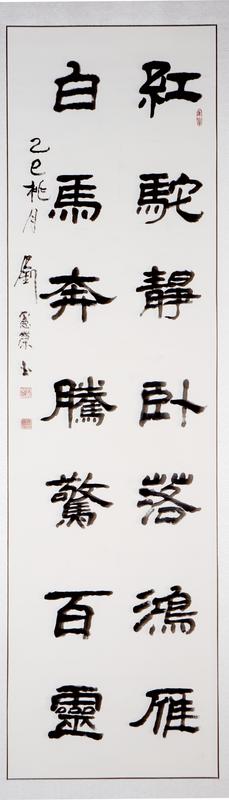 紅駝靜卧落鴻雁
白馬奔騰驚百靈
乙巳桃月劉憲榮書